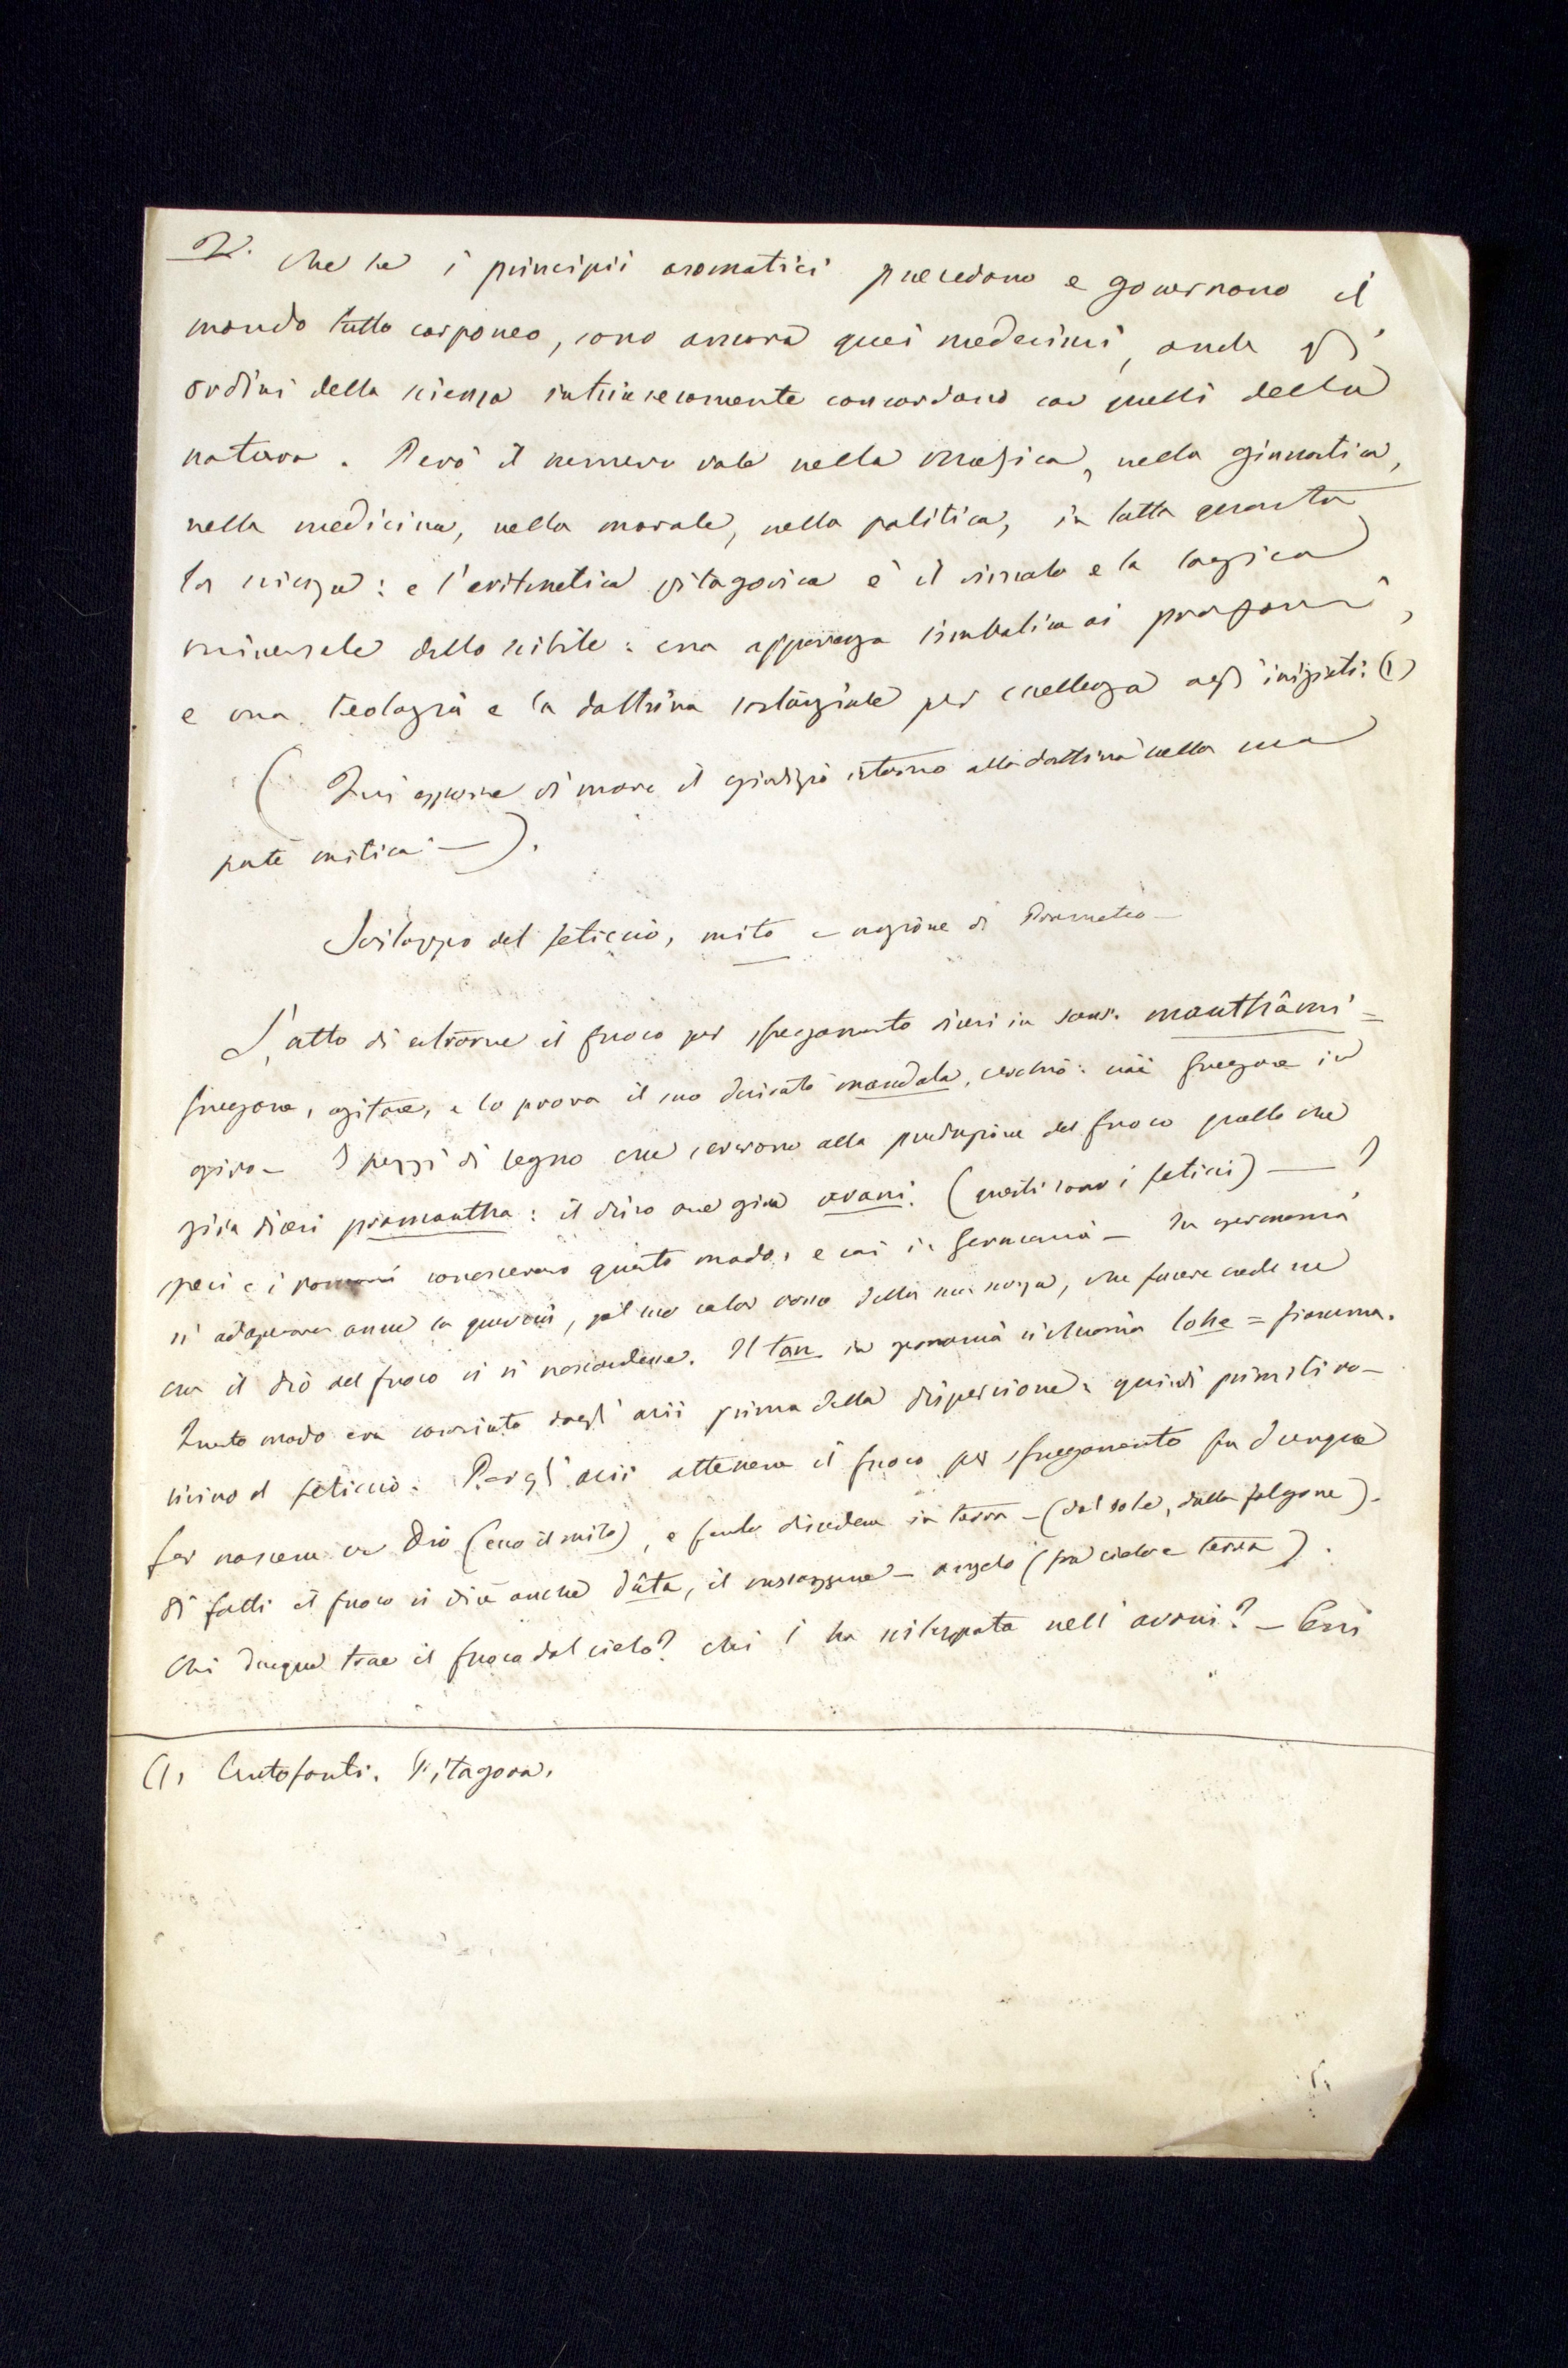 2. che se i principii aromatici precedono e governano il
mondo tutto corporeo, sono ancora quei medesimi, onde gli
ordini della scienza intrinsecamente concordano con quelli della
natura. Però il numero vale nella musica, nella ginnastica,
nella medicina, nella morale, nella politica, in tutta quanta
la scienza: e l'aritmetica pitagorica è il vincolo e la logica
universale dello scibile: una apparenza simbolica ai profani,
e una teologia e la dottrina sostanziale per eccellenza agli iniziati. (1)
( Qui appare di nuovo il giudizio intorno alla dottrina nella sua
parte mitica — ).
Sviluppo del feticcio, mito e ragione di Prometeo —
L'atto di estrarre il fuoco per sfregamento dicesi in sans. manthâmi =
fregare, agitare, e lo prova il suo derivato mandala, cerchio: cioè fregare in
giro — I pezzi di legno che servono alla produzione del fuoco quello che
gira dicesi pramantha: il disco ove gira arani. (questi sono i feticci) — I
greci e i romani conoscevano questo modo, e così in Germania — In germania
si adoperava anche la quercia, pel suo color rosso della sua scorza, che faceva credere
che il dio del fuoco vi si nascondesse. Il tan in germania si chiama lohe = fiamma.
Questo modo era conosciuto dagli arii prima della dispersione: quindi primitivo —
vicino al feticcio. Per gli arii ottenere il fuoco per sfregamento fu dunque
far nascere un Dio (ecco il mito), e farlo discendere in terra — (dal sole, dalla folgore).
Di fatti il fuoco si dice anche dûta, il messaggere — angelo (fra cielo e terra).
Chi dunque trae il fuoco dal cielo? chi l'ha sviluppato nell'arani? — Essi
(1) Centofanti. Pitagora.